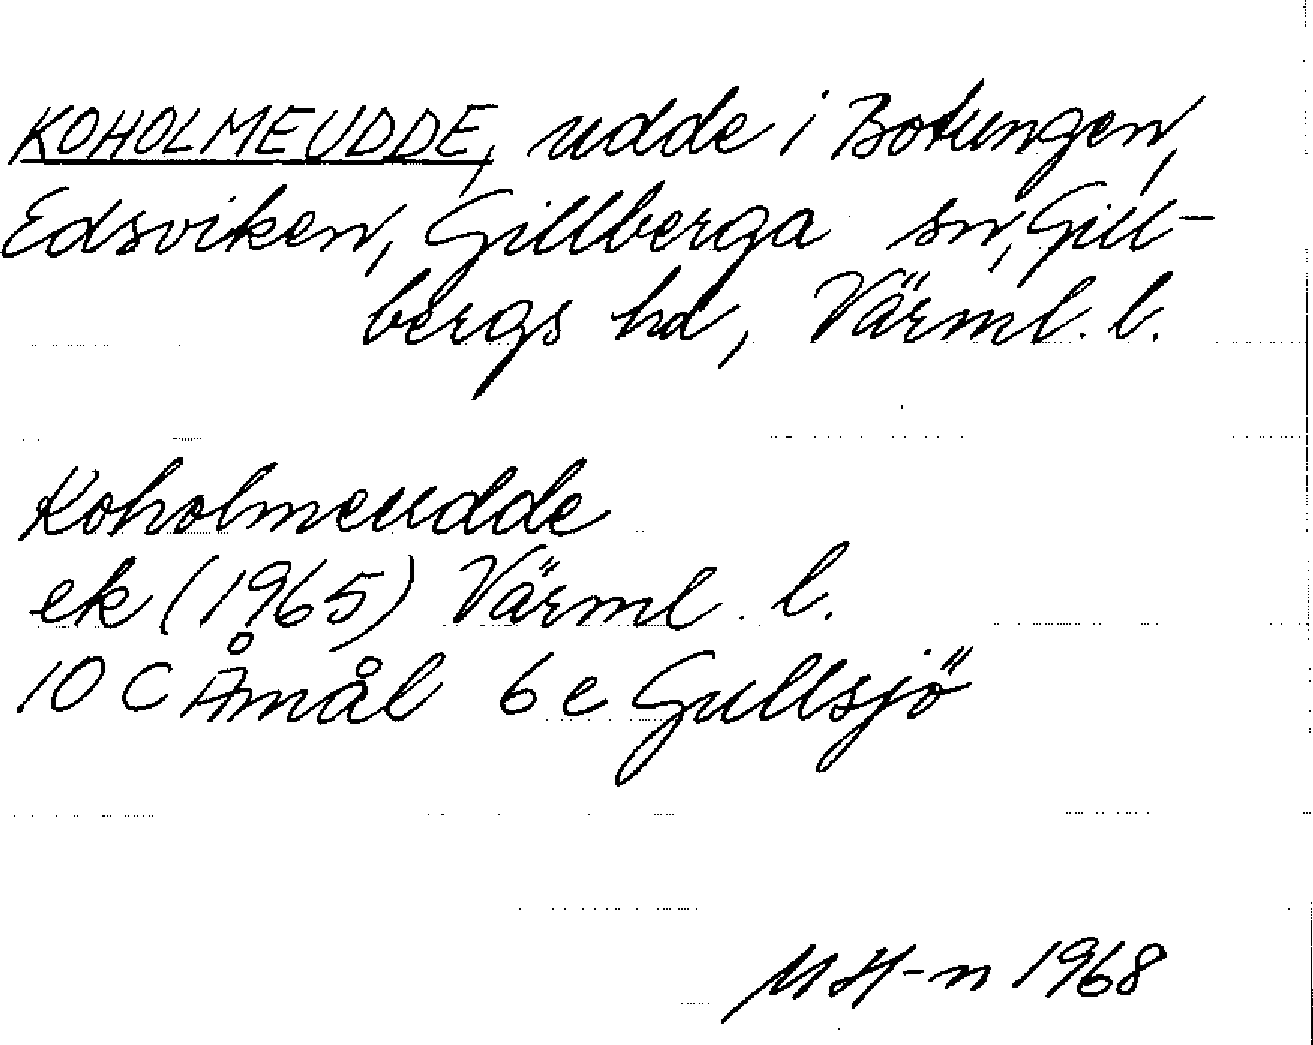 KOHOLMEUDDE, udde i Botungen,
Edsviken, Gillberga sn, Gill-
bergs hd, Värml. l.
Koholmeudde
ek (1965) Värml. l.
10 C Åmål 6 e Gullsjö
M H-n 1968